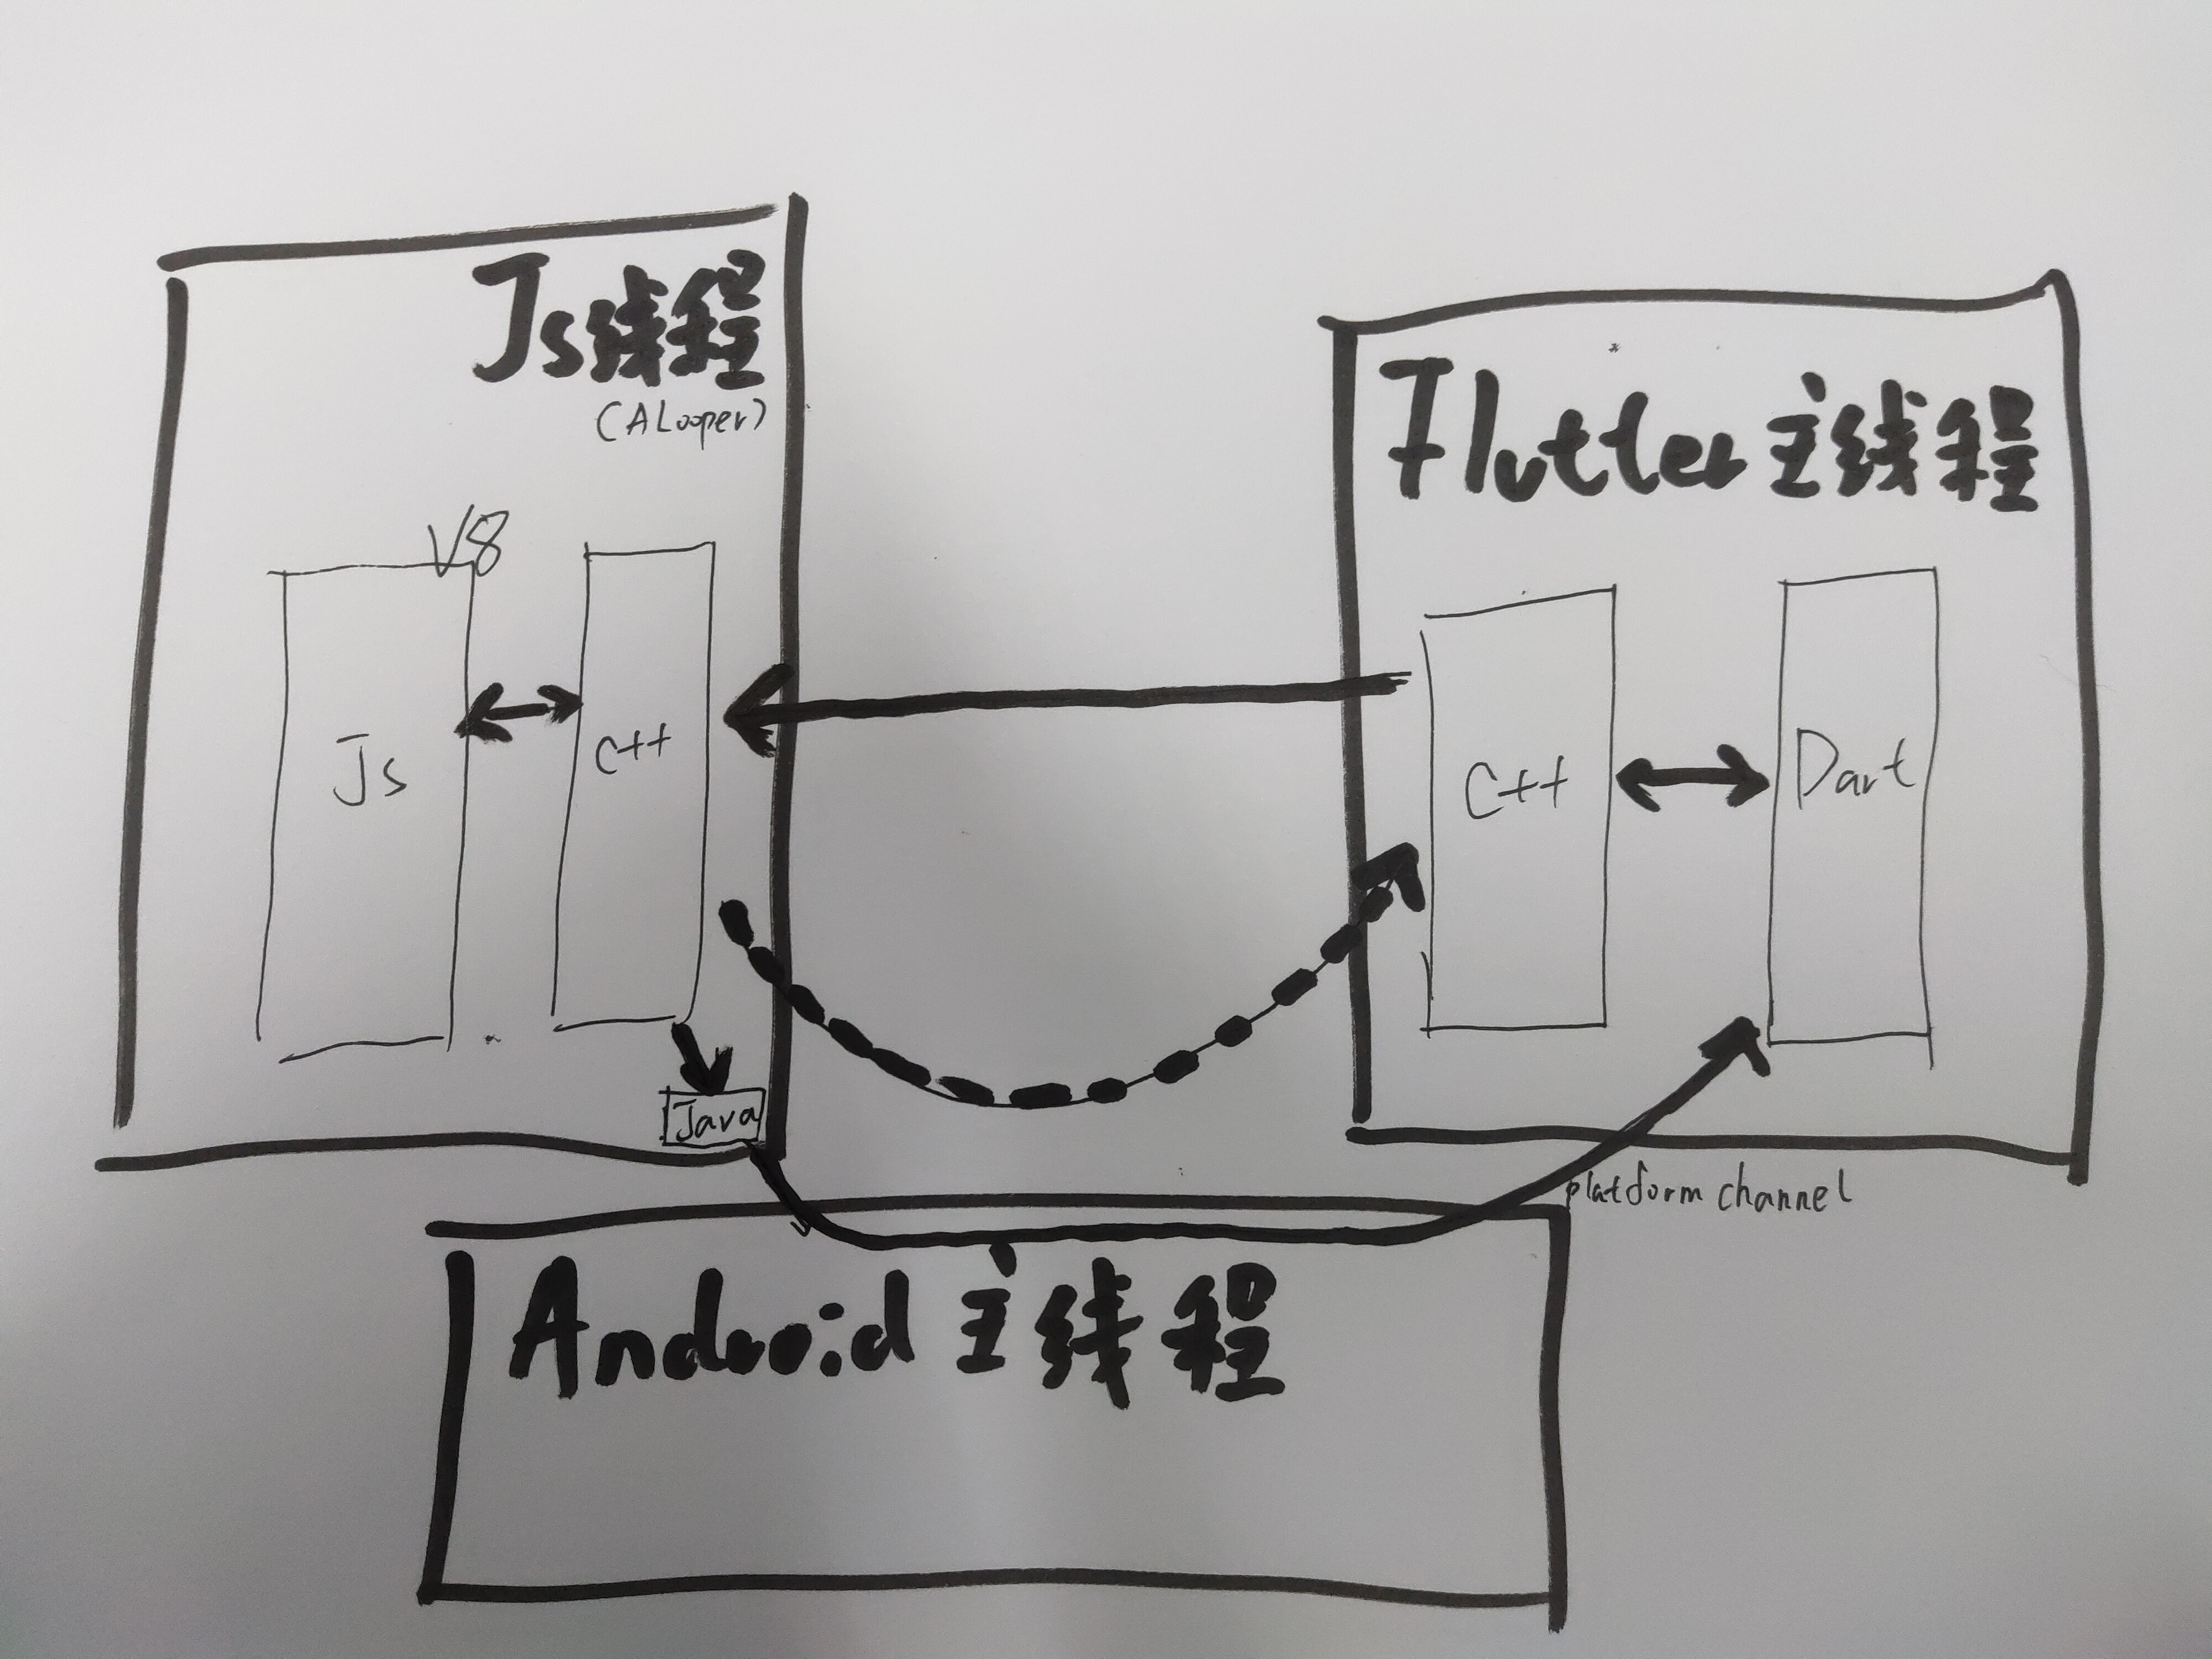 Js线程
(ALooper)
V8
Js
C++
Java
Flutter主线程
C++
Dart
platform channel
Android主线程